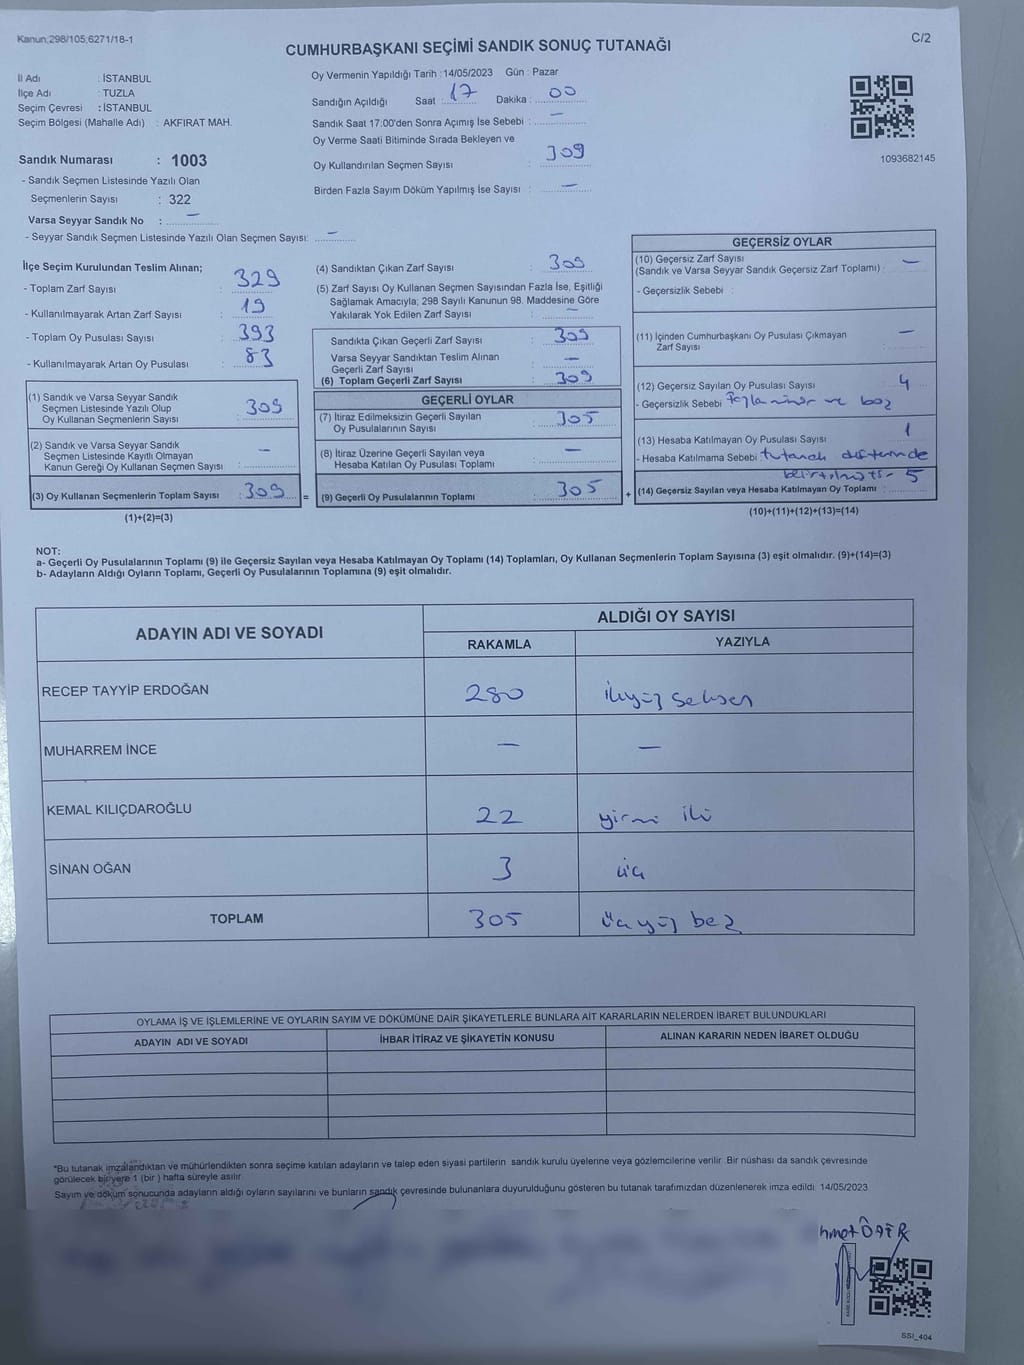 Kanun:298/105,6271/18-1
C/2
CUMHURBAŞKANI SEÇİMİ SANDIK SONUÇ TUTANAĞI
İl Adı : İSTANBUL
İlçe Adı : TUZLA
Seçim Çevresi : İSTANBUL
Seçim Bölgesi (Mahalle Adı) : AKFIRAT MAH.
Sandık Numarası : 1003
- Sandık Seçmen Listesinde Yazılı Olan
Seçmenlerin Sayısı : 322
Varsa Seyyar Sandık No : —
- Seyyar Sandık Seçmen Listesinde Yazılı Olan Seçmen Sayısı: —
Oy Vermenin Yapıldığı Tarih : 14/05/2023 Gün : Pazar
Sandığın Açıldığı Saat : 17 Dakika : 00
Sandık Saat 17:00'den Sonra Açımış İse Sebebi : —
Oy Verme Saati Bitiminde Sırada Bekleyen ve
Oy Kullandırılan Seçmen Sayısı : 309
Birden Fazla Sayım Döküm Yapılmış İse Sayısı : —
1093682145
İlçe Seçim Kurulundan Teslim Alınan;
- Toplam Zarf Sayısı : 329
- Kullanılmayarak Artan Zarf Sayısı : 19
- Toplam Oy Pusulası Sayısı : 393
- Kullanılmayarak Artan Oy Pusulası : 83
(1) Sandık ve Varsa Seyyar Sandık
Seçmen Listesinde Yazılı Olup
Oy Kullanan Seçmenlerin Sayısı : 309
(2) Sandık ve Varsa Seyyar Sandık
Seçmen Listesinde Kayıtlı Olmayan
Kanun Gereği Oy Kullanan Seçmen Sayısı : —
(3) Oy Kullanan Seçmenlerin Toplam Sayısı : 309
(1)+(2)=(3)
(4) Sandıktan Çıkan Zarf Sayısı : 309
(5) Zarf Sayısı Oy Kullanan Seçmen Sayısından Fazla İse, Eşitliği
Sağlamak Amacıyla; 298 Sayılı Kanunun 98. Maddesine Göre
Yakılarak Yok Edilen Zarf Sayısı : —
Sandıkta Çıkan Geçerli Zarf Sayısı : 309
Varsa Seyyar Sandıktan Teslim Alınan
Geçerli Zarf Sayısı : —
(6) Toplam Geçerli Zarf Sayısı : 309
GEÇERLİ OYLAR
(7) İtiraz Edilmeksizin Geçerli Sayılan
Oy Pusulalarının Sayısı : 305
(8) İtiraz Üzerine Geçerli Sayılan veya
Hesaba Katılan Oy Pusulası Toplamı : —
= (9) Geçerli Oy Pusulalarının Toplamı : 305
GEÇERSİZ OYLAR
(10) Geçersiz Zarf Sayısı : —
(Sandık ve Varsa Seyyar Sandık Geçersiz Zarf Toplamı) :
- Geçersizlik Sebebi :
(11) İçinden Cumhurbaşkanı Oy Pusulası Çıkmayan —
Zarf Sayısı :
(12) Geçersiz Sayılan Oy Pusulası Sayısı : 4
- Geçersizlik Sebebi : ve boş
(13) Hesaba Katılmayan Oy Pusulası Sayısı : 1
- Hesaba Katılmama Sebebi : tutanak defterinde
belirtilmiştir 5
+ (14) Geçersiz Sayılan veya Hesaba Katılmayan Oy Toplamı :
(10)+(11)+(12)+(13)=(14)
NOT:
a- Geçerli Oy Pusulalarının Toplamı (9) ile Geçersiz Sayılan veya Hesaba Katılmayan Oy Toplamı (14) Toplamları, Oy Kullanan Seçmenlerin Toplam Sayısına (3) eşit olmalıdır. (9)+(14)=(3)
b- Adayların Aldığı Oyların Toplamı, Geçerli Oy Pusulalarının Toplamına (9) eşit olmalıdır.
ADAYIN ADI VE SOYADI ALDIĞI OY SAYISI
RAKAMLA YAZIYLA
RECEP TAYYİP ERDOĞAN 280 ikiyüz seksen
MUHARREM İNCE — —
KEMAL KILIÇDAROĞLU 22 yirmi iki
SİNAN OĞAN 3 üç
TOPLAM 305 üç yüz beş
OYLAMA İŞ VE İŞLEMLERİNE VE OYLARIN SAYIM VE DÖKÜMÜNE DAİR ŞİKAYETLERLE BUNLARA AİT KARARLARIN NELERDEN İBARET BULUNDUKLARI
ADAYIN ADI VE SOYADI İHBAR İTİRAZ VE ŞİKAYETİN KONUSU ALINAN KARARIN NEDEN İBARET OLDUĞU
*Bu tutanak imzalandıktan ve mühürlendikten sonra seçime katılan adayların ve talep eden siyasi partilerin sandık kurulu üyelerine veya gözlemcilerine verilir. Bir nüshası da sandık çevresinde
görülecek bir yere 1 (bir ) hafta süreyle asılır.
Sayım ve döküm sonucunda adayların aldığı oyların sayılarını ve bunların sandık çevresinde bulunanlara duyurulduğunu gösteren bu tutanak tarafımızdan düzenlenerek imza edildi. 14/05/2023
SSI_404